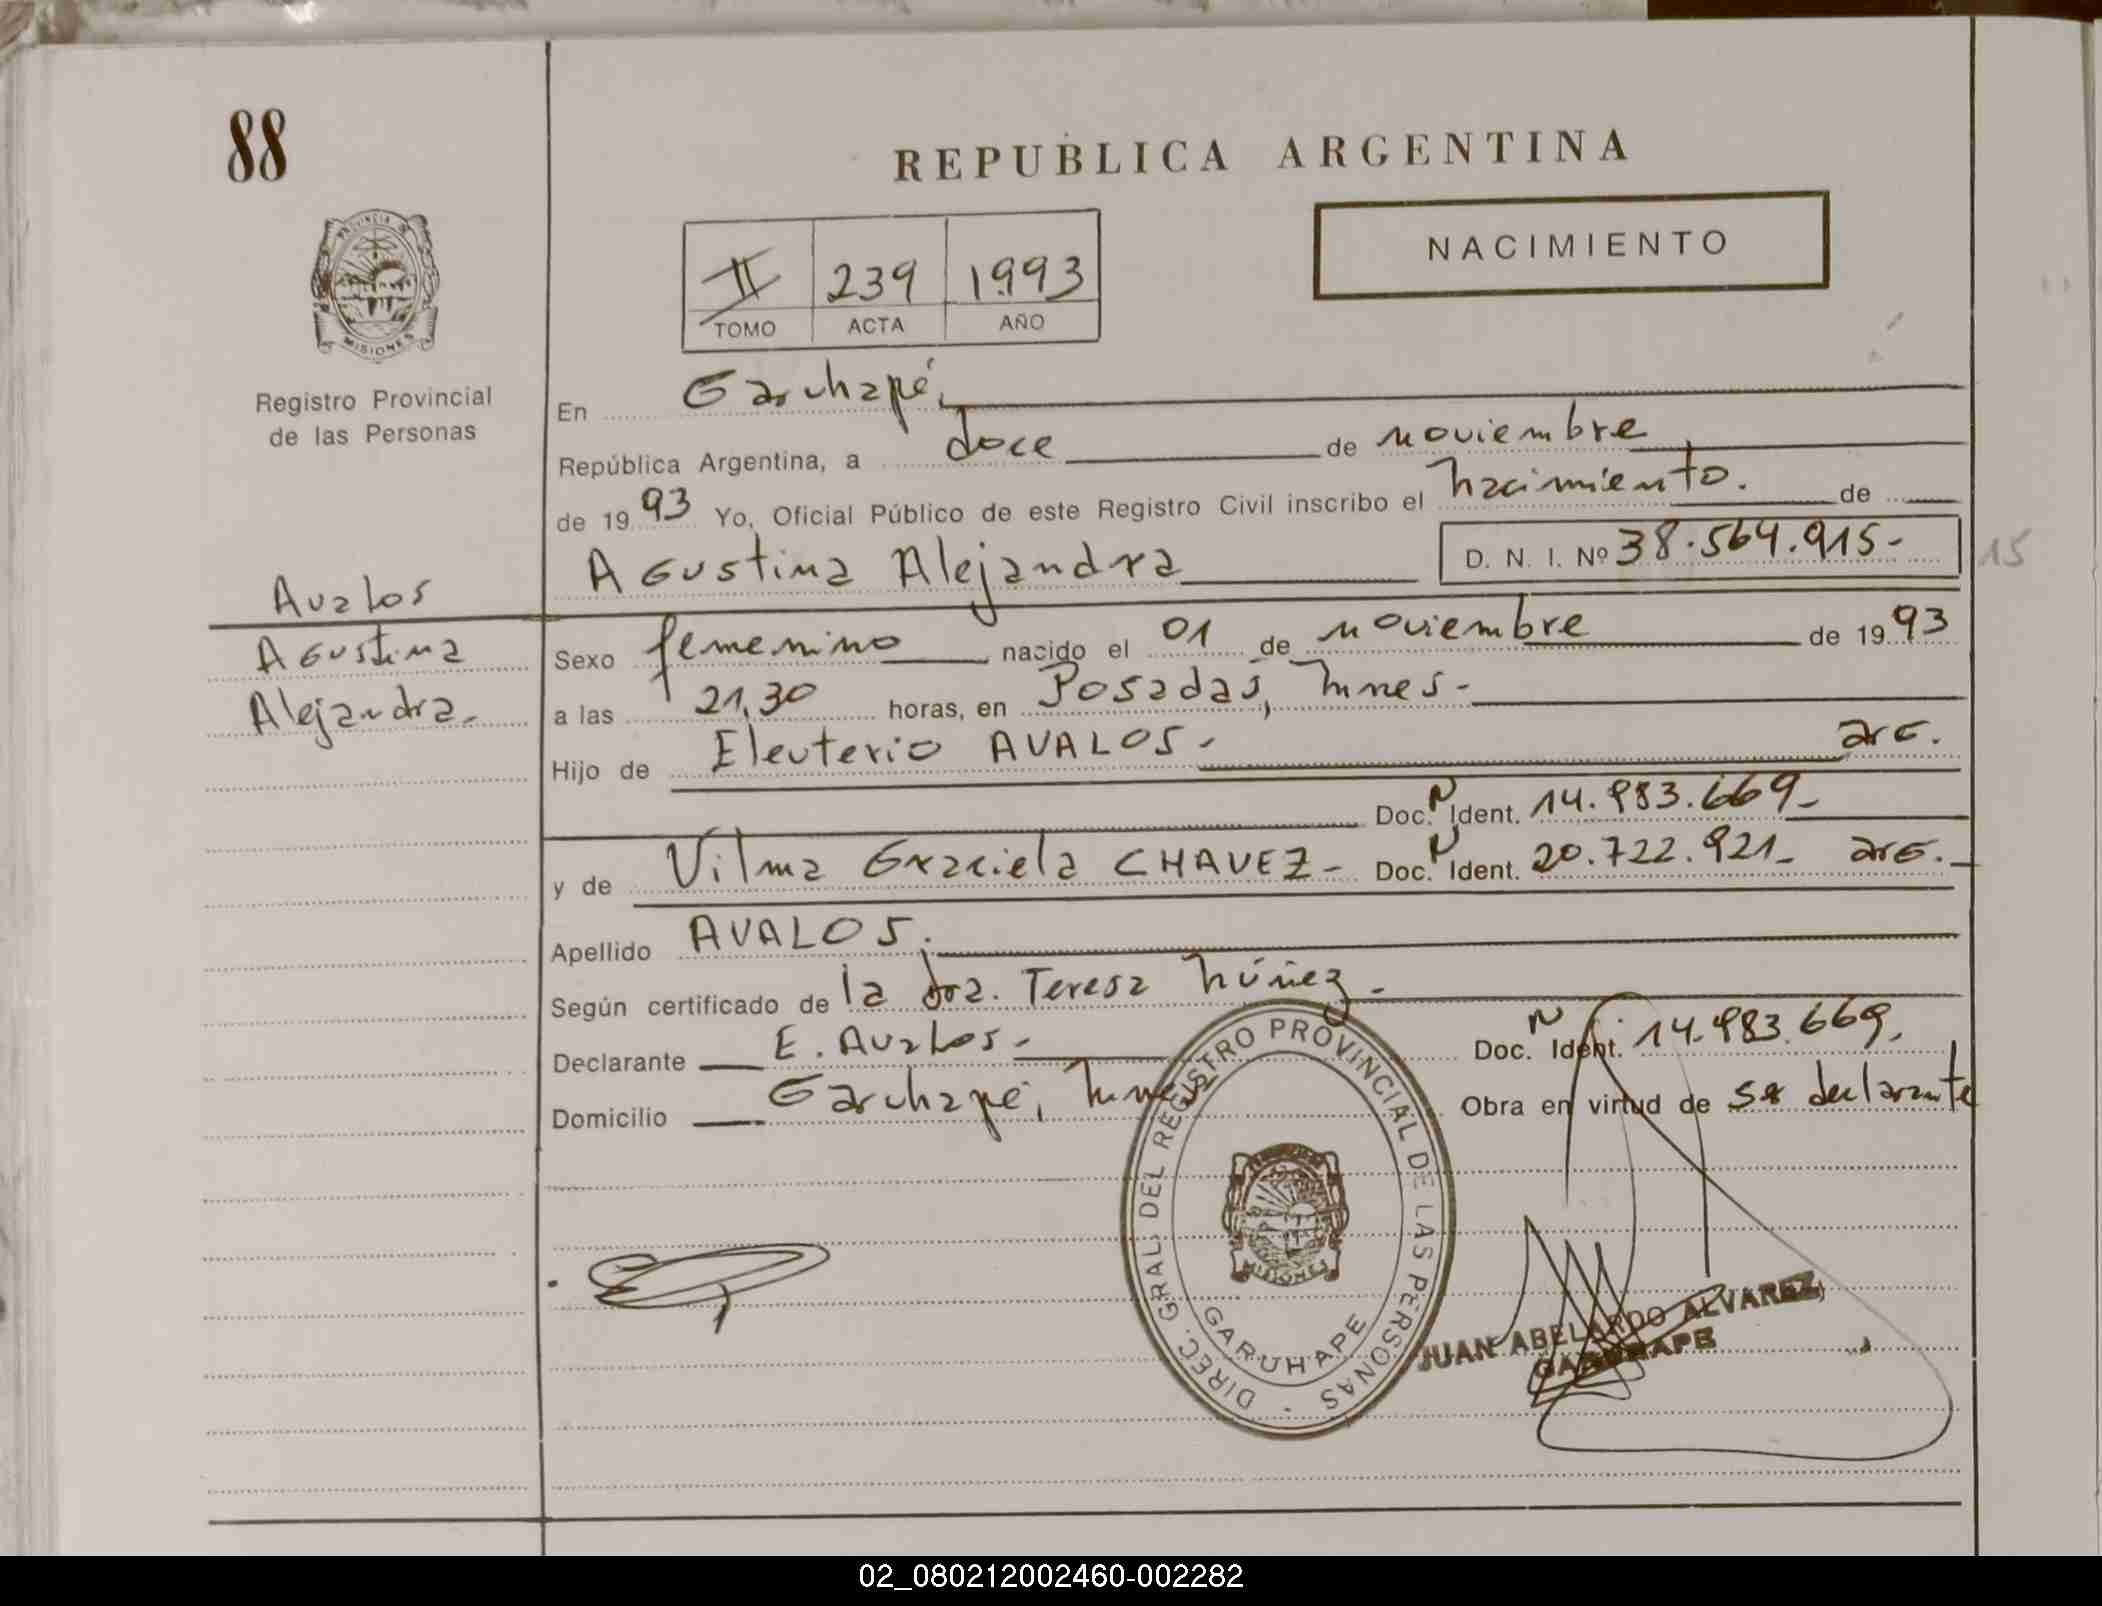 88
REPUBLICA ARGENTINA
NACIMIENTO
II 239 1993
TOMO ACTA AÑO
PROVINCIA DE
MISIONES
Registro Provincial
de las Personas
En Garuhapé,
República Argentina, a doce de noviembre
de 1993 Yo, Oficial Público de este Registro Civil inscribo el nacimiento. de
Agustina Alejandra D. N. I. Nº 38.564.915- 15
Avalos
Agustina
Alejandra.
Sexo femenino nacido el 01 de noviembre de 1993
a las 21,30 horas, en Posadas, Mnes-
Hijo de Eleuterio AVALOS- arg.
Doc. N Ident. 14.983.669-
y de Vilma Graciela CHAVEZ- Doc. N Ident. 20.722.921- arg.-
Apellido AVALOS.
Según certificado de la dra. Teresa Núñez-
Declarante E. Avalos- Doc. N Ident. 14.983.669,
Domicilio Garuhapé, Mnes Obra en virtud de ser declarante
DIREC. GRAL. DEL REGISTRO PROVINCIAL DE LAS PERSONAS
MISIONES
GARUHAPE
JUAN ABELARDO ALVAREZ
GARUHAPE
02_080212002460-002282